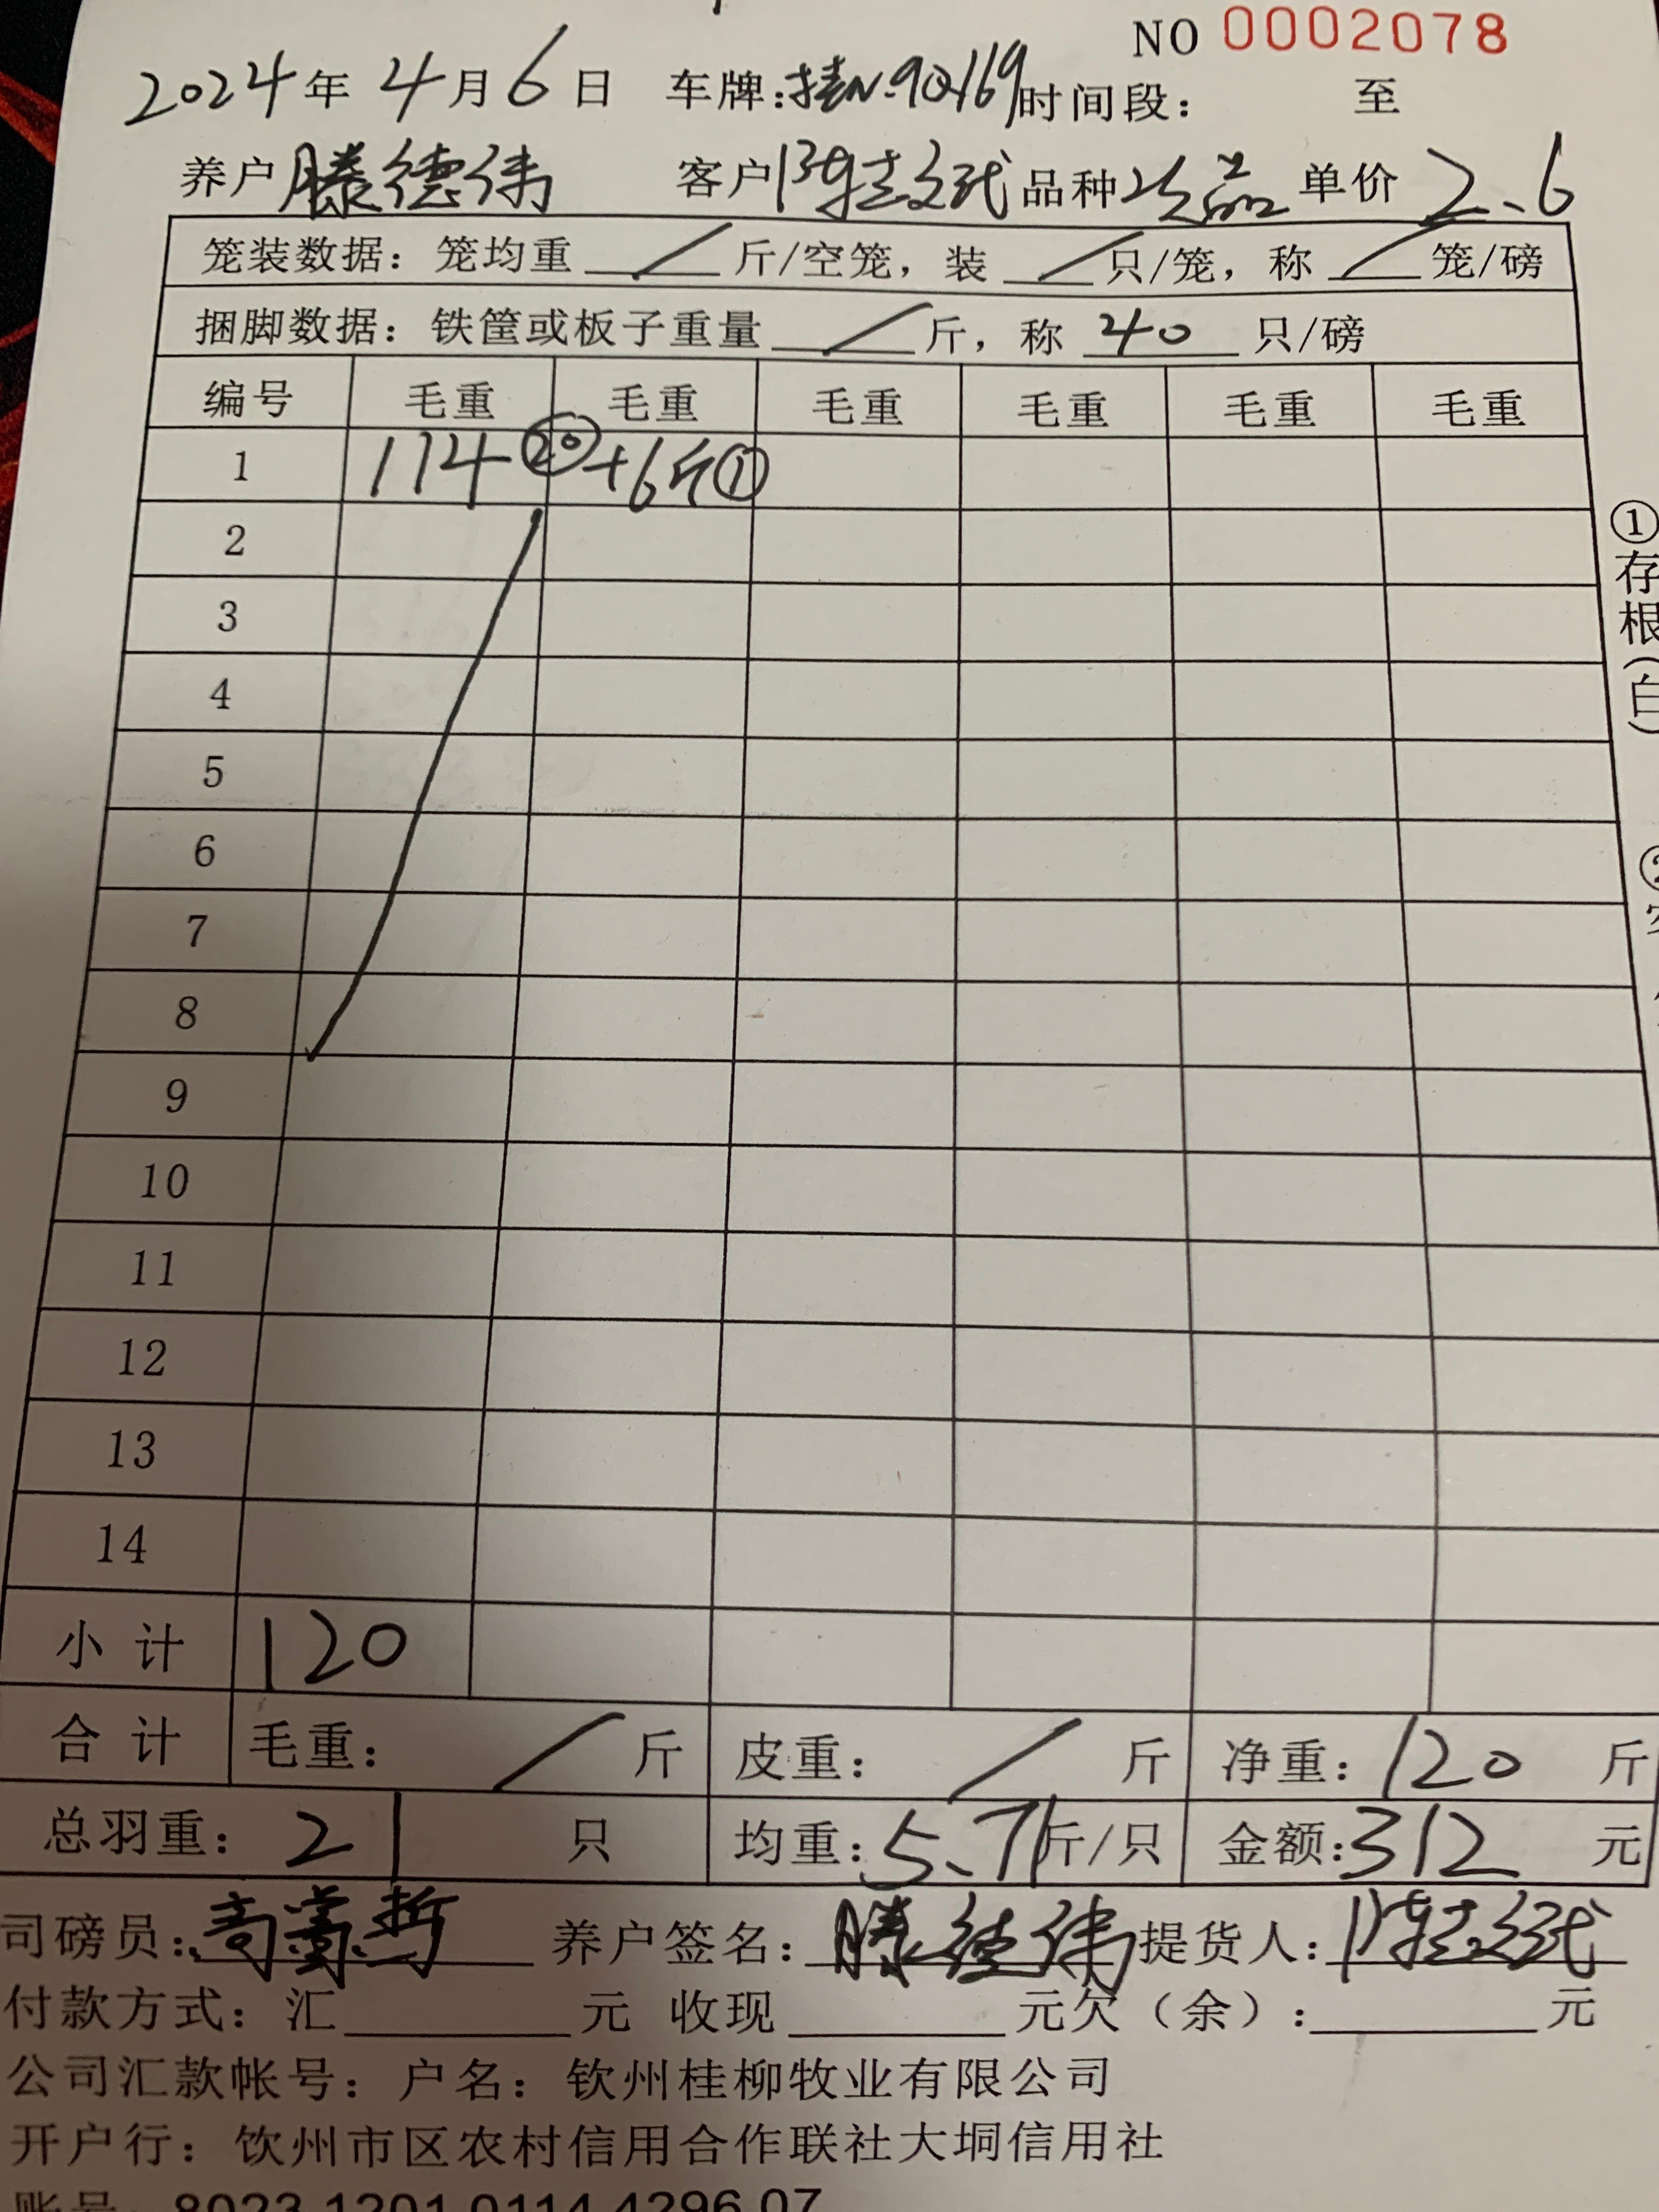 NO 0002078
2024年 4月 6日 车牌:桂N·90169 时间段: 至
养户 滕德伟 客户 品种 次品 单价 2.6
笼装数据: 笼均重 / 斤/空笼, 装 / 只/笼, 称 / 笼/磅
捆脚数据: 铁筐或板子重量 / 斤, 称 40 只/磅
编号 毛重 毛重 毛重 毛重 毛重 毛重
1 114 ⑳ +6斤①
2
3
4
5
6
7
8
9
10
11
12
13
14
小计 120
合计 毛重: / 斤 皮重: / 斤 净重: 120 斤
总羽重: 21 只 均重: 5.71斤/只 金额: 312 元
司磅员: 养户签名: 滕德伟 提货人:
付款方式: 汇 元 收现 元欠(余): 元
公司汇款帐号: 户名: 钦州桂柳牧业有限公司
开户行: 饮州市区农村信用合作联社大垌信用社
账号: 8023 1201 0114 4296 07
①存根(白)